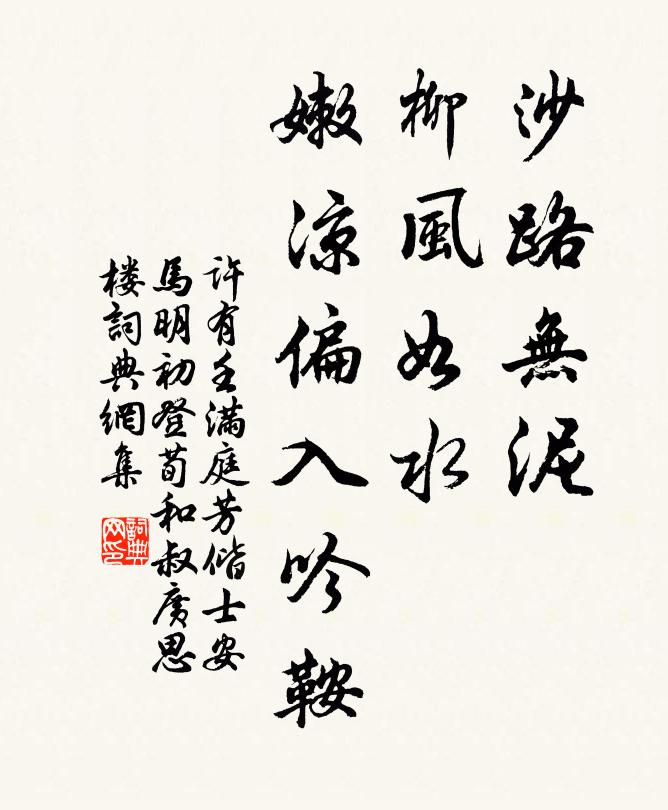 沙路無泥
柳風如水
嫩涼偏入吟鞍
許有壬滿庭芳偕士安
馬明初登荀和叔廣思
楼詞典網集
詞典
网印